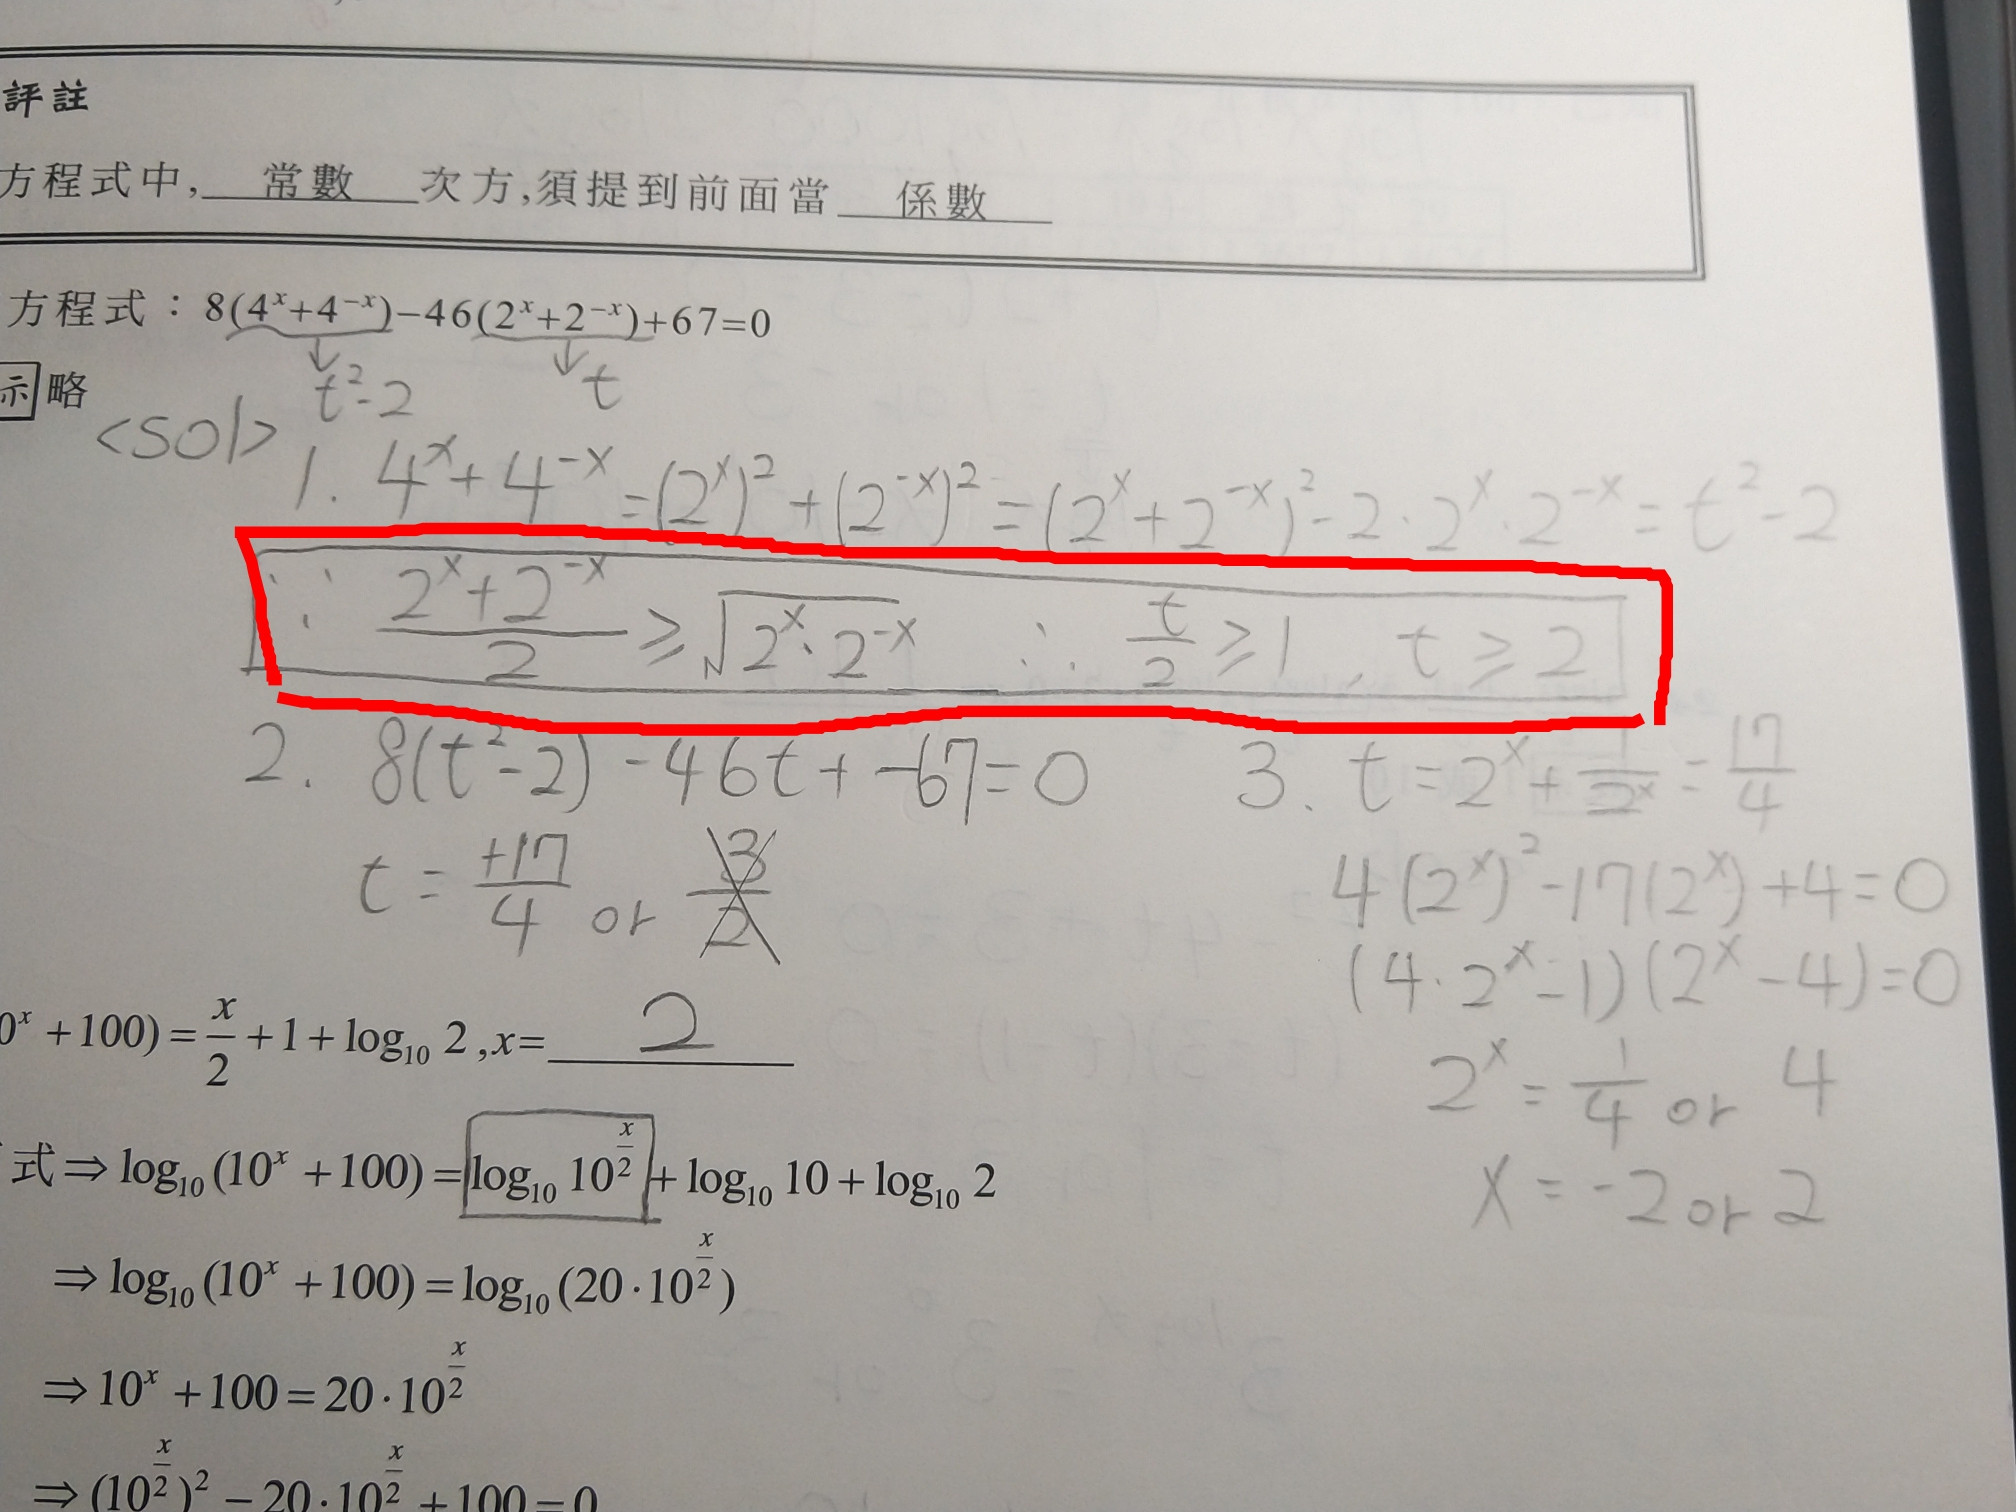 評註
方程式中, 常數 次方,須提到前面當 係數
方程式：8(4^x+4^{-x})-46(2^x+2^{-x})+67=0
t²-2 t
示 略
<sol>
1. 4^x+4^{-x}=(2^x)²+(2^{-x})²=(2^x+2^{-x})²-2·2^x·2^{-x}=t²-2
∵ (2^x+2^{-x})/2 ≥ √(2^x·2^{-x}) ∴ t/2 ≥ 1, t ≥ 2
2. 8(t²-2)-46t+-67=0
t = +17/4 or 3/2
3. t=2^x+1/2^x=17/4
4(2^x)²-17(2^x)+4=0
(4·2^x-1)(2^x-4)=0
2^x=1/4 or 4
x=-2 or 2
0^x+100)=x/2+1+log₁₀ 2 ,x= 2
式⇒log₁₀(10^x+100)=log₁₀ 10^{x/2}+log₁₀ 10+log₁₀ 2
⇒log₁₀(10^x+100)=log₁₀(20·10^{x/2})
⇒10^x+100=20·10^{x/2}
⇒(10^{x/2})²-20·10^{x/2}+100=0